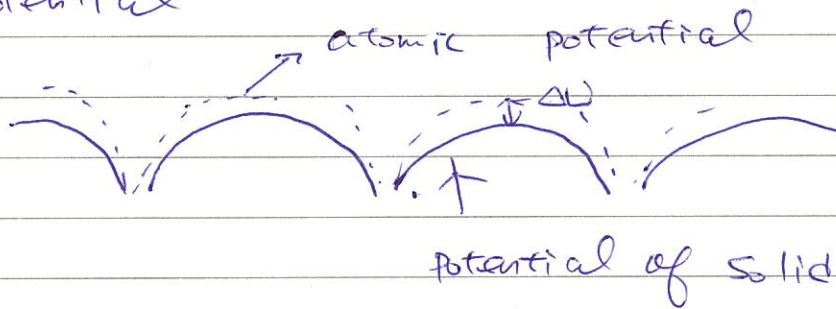 atomic potential
ΔU
potential of solid